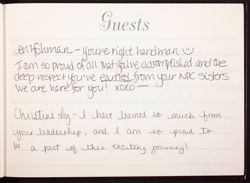 Guests
- You're right handman
I am so proud of all that you've accomplished and the
deep respect you've earned from your NPC sisters
we are here for you! xoxo —
Christine - I have learned so much from
your leadership, and I am so proud to
be a part of this exciting journey!